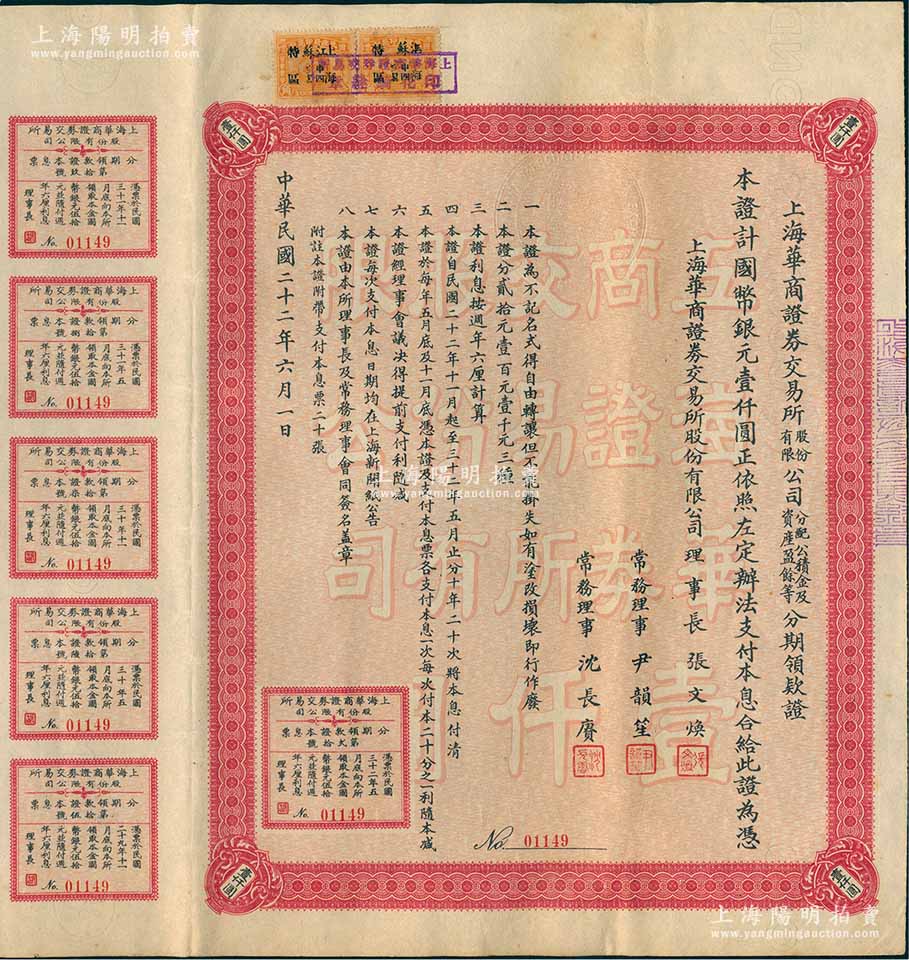 上海陽明拍賣
www.yangmingauction.com
壹仟圓
壹仟圓
上海華商證券交易所股份有限公司分配公積金及資產盈餘等分期領款證
本證計國幣銀元壹仟圓正依照左定辦法支付本息合給此證為憑
上海華商證券交易所股份有限公司理事長 張文煥
常務理事 尹韻笙
常務理事 沈長賡
一 本證為不記名式得自由轉讓但不能掛失如有塗改損壞即行作廢
二 本證分貳拾元壹百元壹千元三種
三 本證利息按週年六厘計算
四 本證自民國二十二年十一月起至三十二年五月止分十年二十次將本息付清
五 本證於每年五月底及十一月底憑本證及支付本息票各支付本息一次每次付本二十分之一利隨本減
六 本證經理事會議決得提前支付利隨減
七 本證每次支付本息日期均在上海新聞紙公告
八 本證由本所理事長及常務理事會同簽名蓋章
附註本證附帶支付本息票二十張
中華民國二十二年六月一日
No. 01149
壹仟圓
壹仟圓
上海華商證券交易所
股份有限公司
分期領款證本息票
第貳拾號
憑票於民國
三十二年五
月底向本所
領取本金國
幣銀元伍拾
元並隨付週
年六厘利息
理事長
No. 01149
上海華商證券交易所
股份有限公司
分期領款證本息票
第拾玖號
憑票於民國
三十一年十一
月底向本所
領取本金國
幣銀元伍拾
元並隨付週
年六厘利息
理事長
No. 01149
上海華商證券交易所
股份有限公司
分期領款證本息票
第拾捌號
憑票於民國
三十一年五
月底向本所
領取本金國
幣銀元伍拾
元並隨付週
年六厘利息
理事長
No. 01149
上海華商證券交易所
股份有限公司
分期領款證本息票
第拾柒號
憑票於民國
三十年十一
月底向本所
領取本金國
幣銀元伍拾
元並隨付週
年六厘利息
理事長
No. 01149
上海華商證券交易所
股份有限公司
分期領款證本息票
第拾陸號
憑票於民國
三十年五
月底向本所
領取本金國
幣銀元伍拾
元並隨付週
年六厘利息
理事長
No. 01149
上海華商證券交易所
股份有限公司
分期領款證本息票
第拾伍號
憑票於民國
二十九年十一
月底向本所
領取本金國
幣銀元伍拾
元並隨付週
年六厘利息
理事長
No. 01149
上海陽明拍賣
www.yangmingauction.com
上海陽明拍賣
www.yangmingauction.com